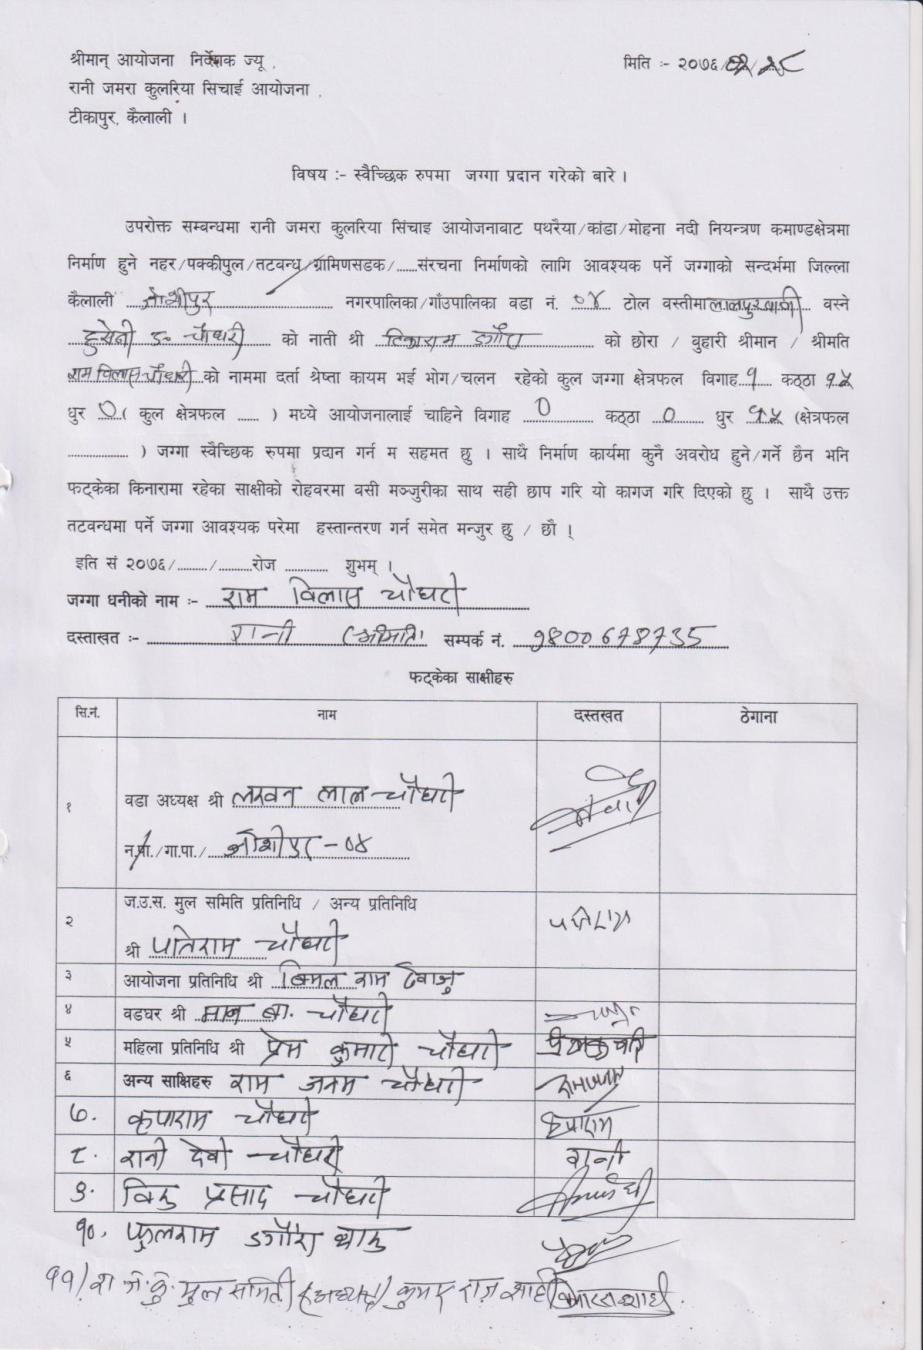 श्रीमान् आयोजना निर्देशक ज्यू , मिति :- २०७६/
रानी जमरा कुलरिया सिचाई आयोजना ,
टीकापुर, कैलाली ।
विषय :- स्वैच्छिक रुपमा जग्गा प्रदान गरेको बारे ।
उपरोक्त सम्बन्धमा रानी जमरा कुलरिया सिंचाइ आयोजनाबाट पथरैया/कांडा/मोहना नदी नियन्त्रण कमाण्डक्षेत्रमा
निर्माण हुने नहर/पक्कीपुल/तटवन्ध/ग्रामिणसडक/......संरचना निर्माणको लागि आवश्यक पर्ने जग्गाको सन्दर्भमा जिल्ला
कैलाली जोशीपुर नगरपालिका/गाँउपालिका वडा नं. ०४ टोल वस्तीमा वस्ने
चौधरी को नाती श्री टिकाराम डगौरा को छोरा / बुहारी श्रीमान / श्रीमति
राम विलास चौधरी को नाममा दर्ता श्रेष्ता कायम भई भोग/चलन रहेको कुल जग्गा क्षेत्रफल विगाह १ कठ्ठा १५
धुर ० ( कुल क्षेत्रफल ...... ) मध्ये आयोजनालाई चाहिने विगाह ० कठ्ठा ० धुर १५ (क्षेत्रफल
.................. ) जग्गा स्वैच्छिक रुपमा प्रदान गर्न म सहमत छु । साथै निर्माण कार्यमा कुनै अवरोध हुने/गर्ने छैन भनि
फट्केका किनारामा रहेका साक्षीको रोहवरमा वसी मञ्जुरीका साथ सही छाप गरि यो कागज गरि दिएको छु । साथै उक्त
तटवन्धमा पर्ने जग्गा आवश्यक परेमा हस्तान्तरण गर्न समेत मन्जुर छु / छौ ।
इति सं २०७६/........./.........रोज ............ शुभम् ।
जग्गा धनीको नाम :- राम विलास चौधरी
दस्ताखत :- रानी (श्रीमति) सम्पर्क नं. 9800678735
फट्केका साक्षीहरु
सि.नं. नाम दस्तखत ठेगाना
१ वडा अध्यक्ष श्री लखन लाल चौधरी
न.पा./गा.पा./ जोशीपुर - ०४
२ ज.उ.स. मुल समिति प्रतिनिधि / अन्य प्रतिनिधि
श्री पतिराम चौधरी पतिराम
३ आयोजना प्रतिनिधि श्री विमल राम
४ वडघर श्री मान ब. चौधरी
५ महिला प्रतिनिधि श्री प्रेम कुमारी चौधरी
६ अन्य साक्षिहरु राम जनम चौधरी
७. कृपाराम चौधरी कृपाराम
८. रानी देवी चौधरी रानी
९. प्रसाद चौधरी
१०. फुलराम डगौरा थारु
११) रा.ज.कु. मुल समिती (अध्यक्ष) कुमार राज शाही